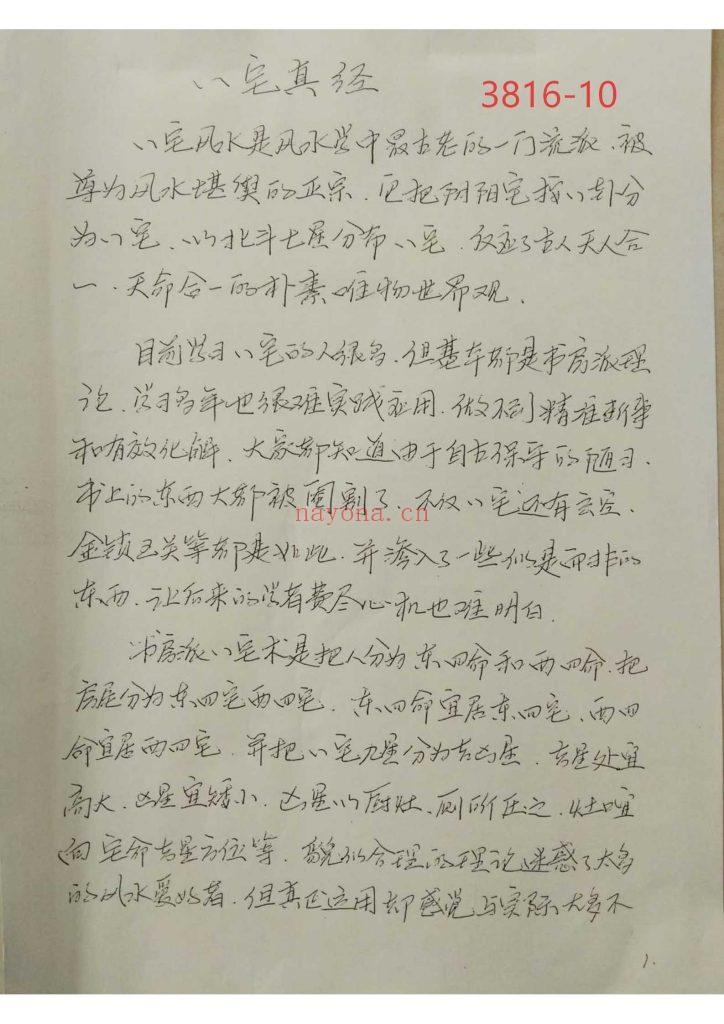 八宅真经
3816-10
八宅风水是风水学中最古老的一门流派.被
尊为风水堪舆的正宗.它把阴阳宅按八卦分
为八宅.以北斗七星分布八宅.反应了古人天人合
一.天命合一的朴素唯物世界观.
目前学习八宅的人很多.但基本都是书房派理
论.学习多年也很难实践应用.做不到精准断事
和有效化解.大家都知道由于自古保守的陋习.
书上的东西大都被阉割了.不仅八宅还有玄空.
nayona.cn
金锁玉关等都是如此.并渗入了一些似是而非的
东西.让后来的学者费尽心机也难明白.
书房派八宅术是把人分为东四命和西四命.把
房屋分为东四宅西四宅.东四命宜居东四宅.西四
命宜居西四宅.并把八宅九星分为吉凶星.吉星处宜
高大.凶星宜矮小.凶星以厨灶.厕所压之.灶口宜
向宅命吉星方位等.貌似合理的理论迷惑了太多
的风水爱好者.但真正运用却感觉与实际大多不
1.